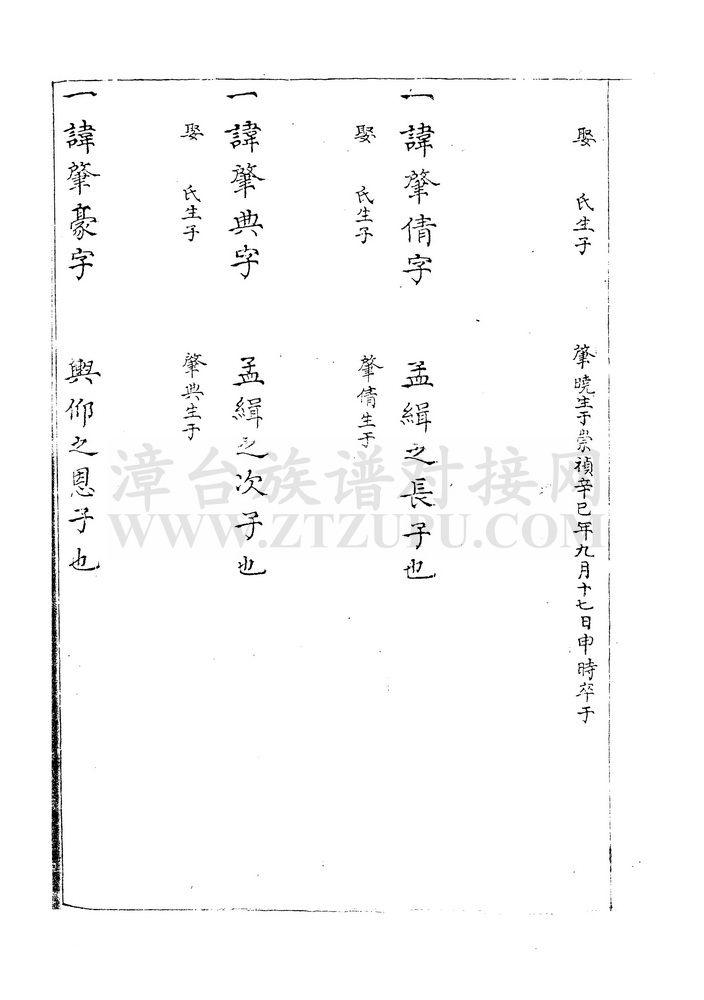 娶　氏生子　肇曉生于崇禎辛巳年九月十七日申時卒于
一諱肇倩字　孟緝之長子也
娶　氏生子　肇倩生于
一諱肇典字　孟緝之次子也
娶　氏生子　肇典生于
一諱肇豪字　興仰之恩子也
漳台族谱对接网
WWW.ZTZUPU.COM